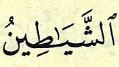 ٱلشَّيَـٰطِينُ